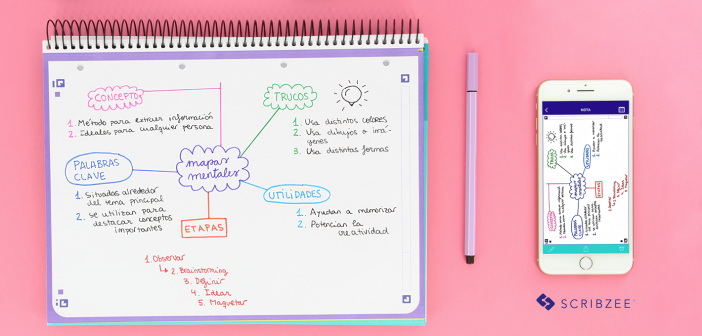 CONCEPTO
1. Método para extraer información
2. Ideales para cualquier persona
TRUCOS
1. Usa distintos colores
2. Usa dibujos o imá-
genes
3. Usa distintas formas
PALABRAS
CLAVE
1. Situadas alrededor
del tema principal
2. Se utilizan para
destacar conceptos
importantes
mapas
mentales
UTILIDADES
1. Ayudan a memorizar
2. Potencian la
creatividad
ETAPAS
1. Observar
2. Brainstorming
3. Definir
4. Idear
5. Maquetar
NOTA
TRUCOS
UTILIDADES
CONCEPTO
mapas
mentales
ETAPAS
PALABRAS
CLAVE
SCRIBZEE